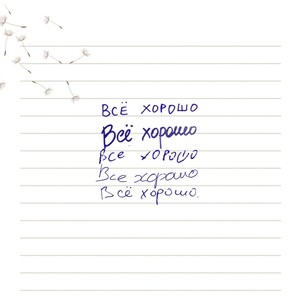 ВСЁ ХОРОШО
Всё хорошо
Все хорошо
Все хорошо
Всё хорошо.